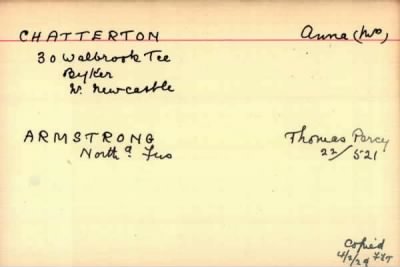 CHATTERTON Anna (Mrs)
30 Walbrook Tce
Byker
N. Newcastle
ARMSTRONG Thomas Percy
North'd Fus 22/521
Copied
4/2/29